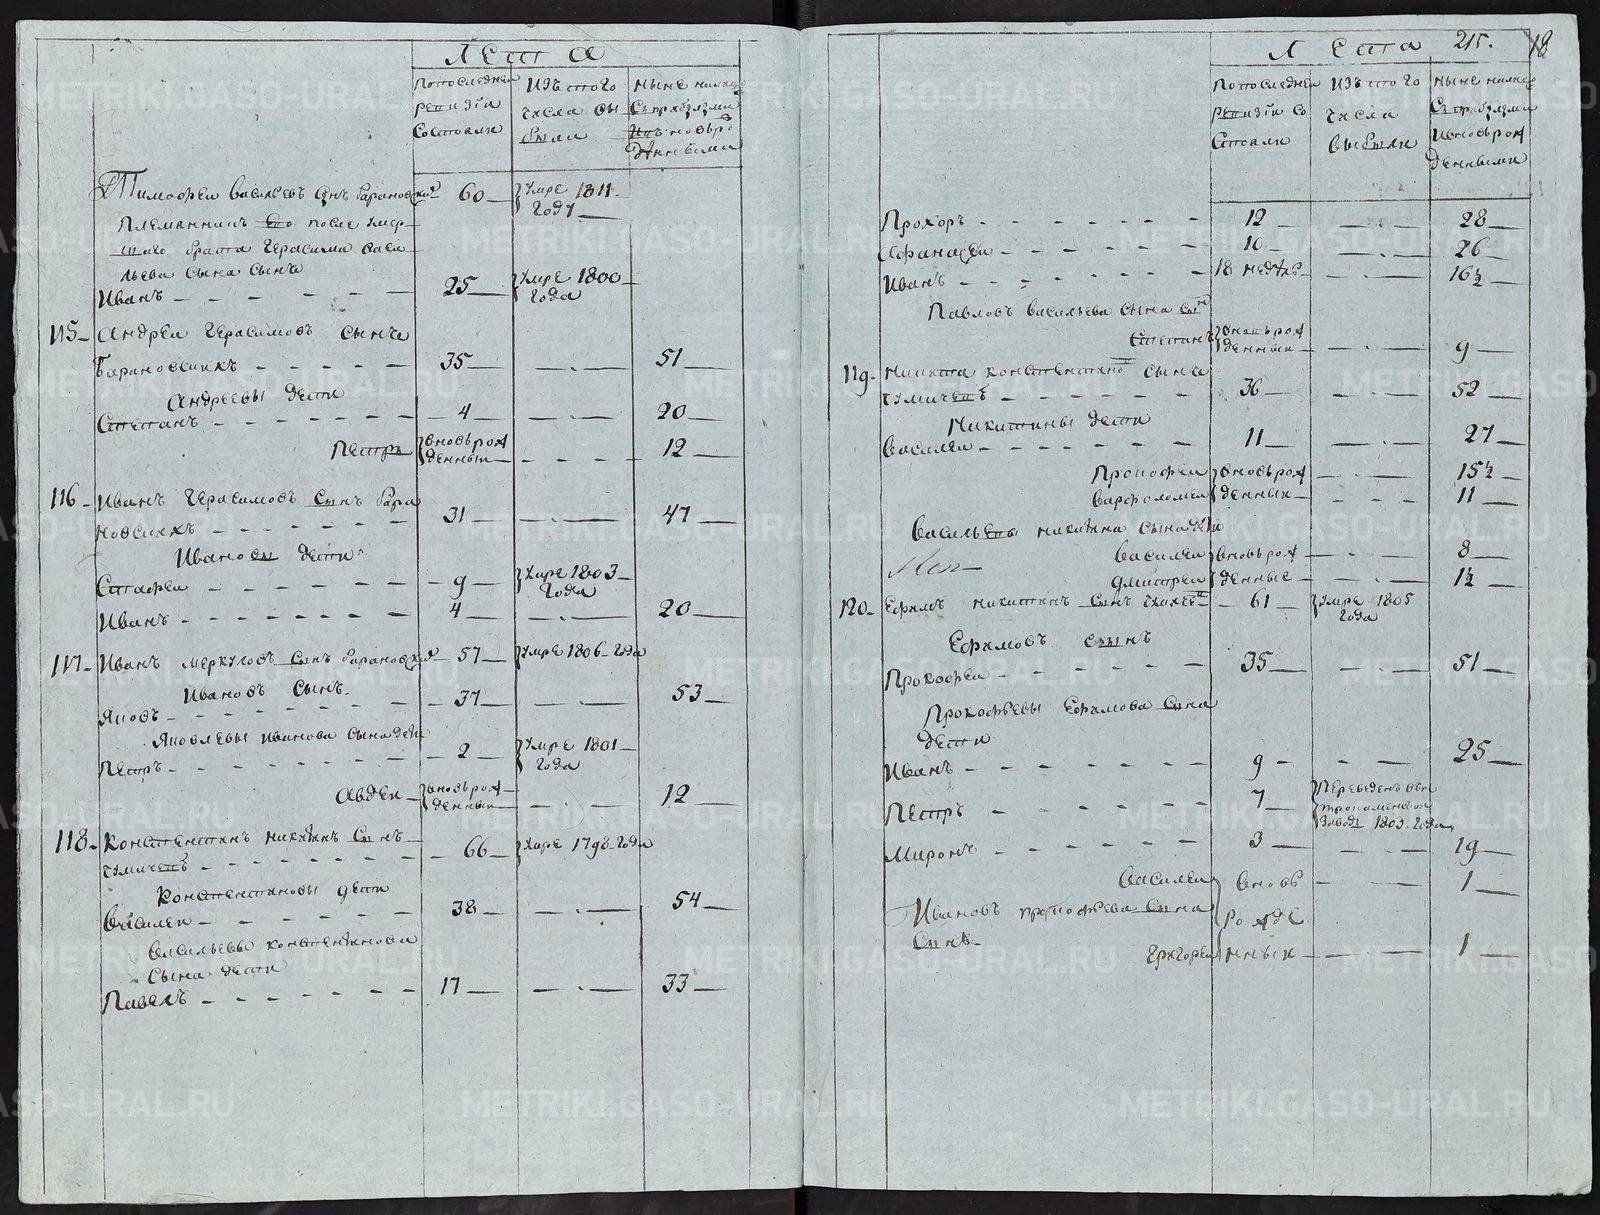 Лета
По последней
ревизии
состояли
Изъ того
числа вы
были
Ныне налицо
съ прибылыми
и новорож
денными
Тимофеи Васильевъ снъ Барановскихъ 60 умре 1811
году
Племянникъ ево после умер
шаго брата Герасима Васи
льева сына сынъ
Иванъ 25 умре 1800
года
115 Андреи Герасимовъ сынъ
Барановскихъ 35 51
Андреевы дети
Степанъ 4 20
Петръ вновьрож
денныи 12
116 Иванъ Герасимовъ сынъ Бара
новскихъ 31 47
Ивановы дети
Стафеи 9 умре 1803
года
Иванъ 4 20
117 Иванъ Меркуловъ сынъ Барановскихъ 57 умре 1806 года
Ивановъ сынъ
Яковъ 37 53
Яковлевы Иванова сына дети
Петръ 2 умре 1801
года
Авдеи вновьрож
денныи 12
118 Констентинъ Никитинъ сынъ
66 умре 1798 года
Констентиновы дети
Василеи 38 54
Васильевы Констентинова
сына дети
Павелъ 17 33
Лета 215. 18
По последней
ревизии со
стояли
Изъ того
числа
выбыли
Ныне налицо
съ прибылыми
и вновьрож
денными
Прохоръ 12 28
Афанасеи 10 26
Иванъ 18 недель 16½
Павловъ Васильева сына сынъ
Степанъ вновьрож
денныи 9
119 Никита Констентиновъ сынъ
36 52
Никитины дети
Василеи 11 27
Прокофеи вновьрож 15½
Варфоломеи денныи 11
Васильевы Никитина сына дети
Василеи вновьрож 8
Дмитреи денные 1½
120 Ефимъ Никитинъ сынъ 61 умре 1805
года
Ефимовъ сынъ
Прокофеи 35 51
Прокофьевы Ефимова сына
дети
Иванъ 9 25
Петръ 7 Переведенъ въ
завод 1803 года
Миронъ 3 19
Василеи вновь 1
Ивановъ Прокофьева сына рожде
сынъ
Григореи нныи 1
METRIKI.GASO-URAL.RU